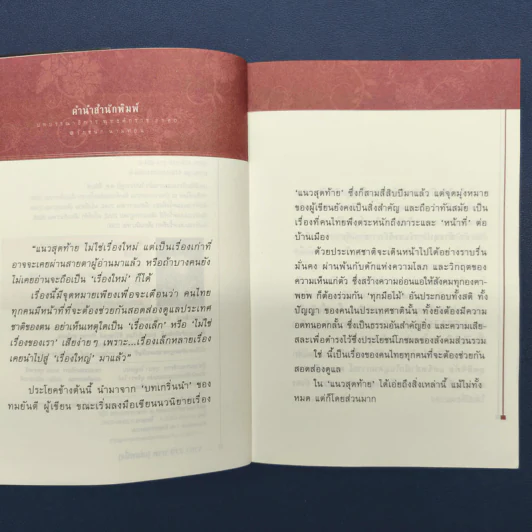 คำนำสำนักพิมพ์
“แนวสุดท้าย ไม่ใช่เรื่องใหม่ แต่เป็นเรื่องเก่าที่
อาจจะเคยผ่านสายตาผู้อ่านมาแล้ว หรือถ้าบางคนยัง
ไม่เคยอ่านจะถือเป็น ‘เรื่องใหม่’ ก็ได้
เรื่องนี้มีจุดหมายเพียงเพื่อจะเตือนว่า คนไทย
ทุกคนมีหน้าที่ที่จะต้องช่วยกันสอดส่องดูแลประเทศ
ชาติของตน อย่าเห็นเหตุใดเป็น ‘เรื่องเล็ก’ หรือ ‘ไม่ใช่
เรื่องของเรา’ เสียง่ายๆ เพราะ...เรื่องเล็กหลายเรื่อง
เคยนำไปสู่ ‘เรื่องใหญ่’ มาแล้ว”
ประโยคข้างต้นนี้ นำมาจาก ‘บทเกริ่นนำ’ ของ
ทมยันตี ผู้เขียน ขณะเริ่มลงมือเขียนนวนิยายเรื่อง
‘แนวสุดท้าย’ ซึ่งก็สามสี่สิบปีมาแล้ว แต่จุดมุ่งหมาย
ของผู้เขียนยังคงเป็นสิ่งสำคัญ และถือว่าทันสมัย เป็น
เรื่องที่คนไทยพึงตระหนักถึงภาระและ ‘หน้าที่’ ต่อ
บ้านเมือง
ด้วยประเทศชาติจะเดินหน้าไปได้อย่างราบรื่น
มั่นคง ผ่านพ้นกับดักแห่งความโลภ และวิกฤตของ
ความเห็นแก่ตัว ซึ่งสร้างความอ่อนแอให้สังคมทุกองคา-
พยพ ก็ต้องร่วมกัน ‘ทุกมือไม้’ อันประกอบทั้งสติ ทั้ง
ปัญญา ของคนในประเทศชาตินั้น ทั้งยังต้องมีความ
อดทนอดกลั้น ซึ่งเป็นธรรมอันสำคัญยิ่ง และความเสีย-
สละเพื่อดำรงไว้ซึ่งประโยชน์โภชผลของสังคมส่วนรวม
ใช่ นี้เป็นเรื่องของคนไทยทุกคนที่จะต้องช่วยกัน
สอดส่องดูแล
ใน ‘แนวสุดท้าย’ ได้เอ่ยถึงสิ่งเหล่านี้ แม้ไม่ทั้ง-
หมด แต่ก็โดยส่วนมาก